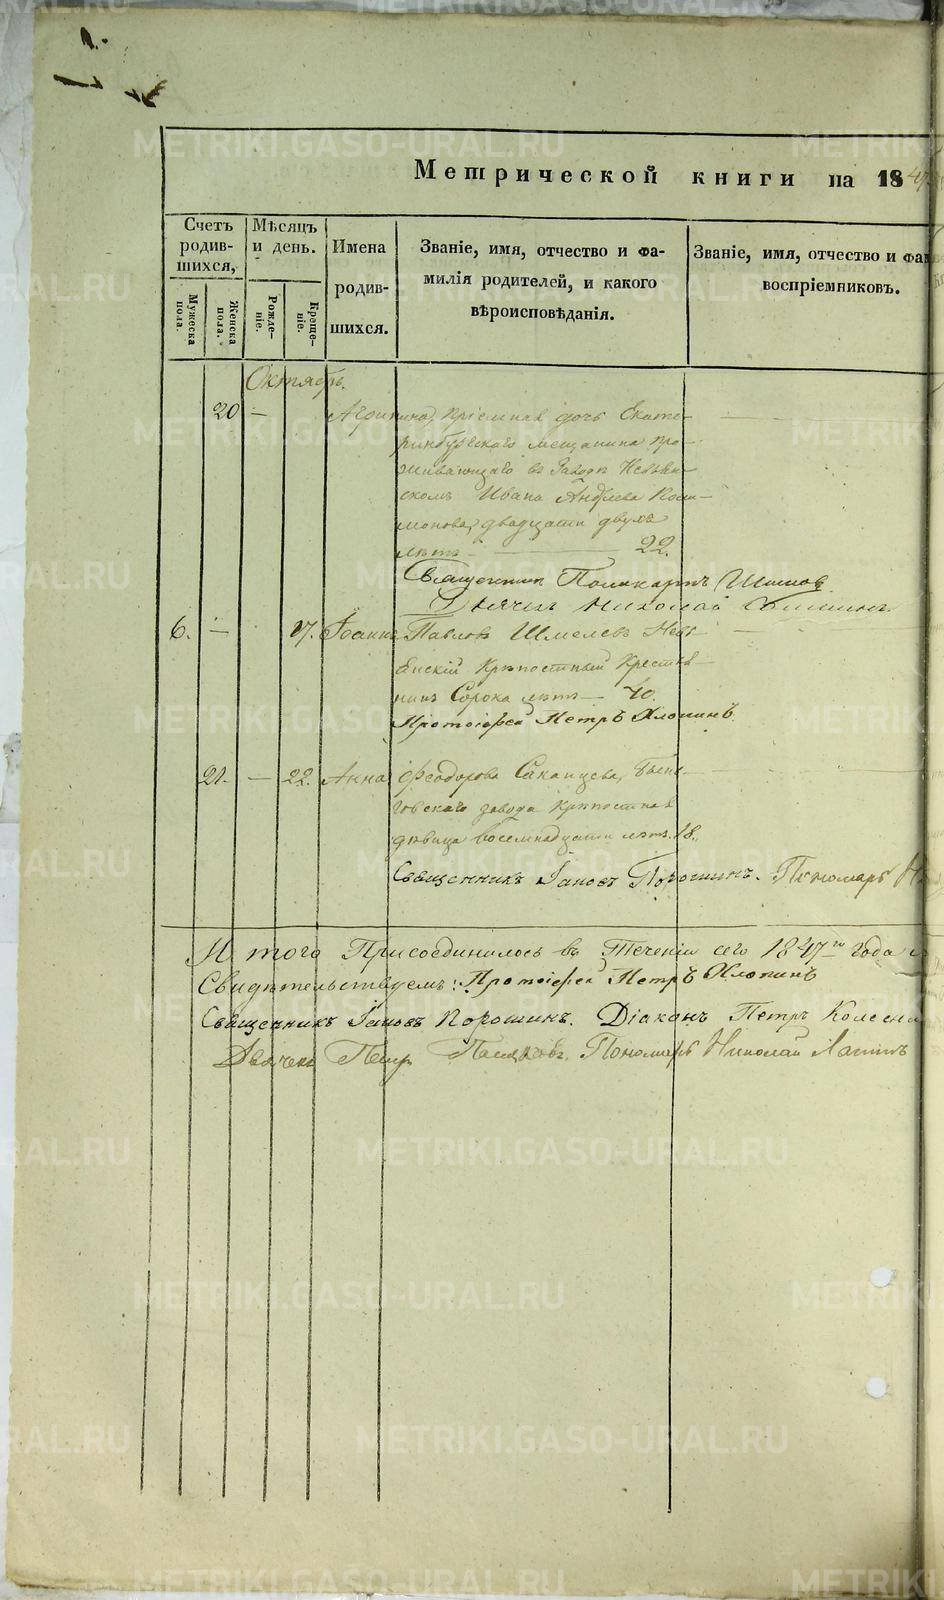 Метрической книги на 1847
Счетъ родив-шихся,
Мѣсяцъ и день.
Имена родив-шихся.
Званіе, имя, отчество и фа-
милія родителей, и какого
вѣроисповѣданія.
Званіе, имя, отчество и фам
воспріемниковъ.
Мужеска пола.
Женска пола.
Рожде-ніе.
Креще-ніе.
Октябрь.
20 — Агрипина, пріемная дочь Екате-
ринбургскаго мещанина про-
живающаго въ Заводѣ Невьян-
скомъ Ивана
двадцати двухъ
лѣтъ — 22.
Священникъ Поликарпъ
Дьячекъ Николай
6. — 17. Іоаннъ Павловъ Шмелевъ Невь-
янскій Крѣпостный Крестья-
нинъ Сорока лѣтъ — 40.
Протоіерей Петръ Хлопинъ.
21. — 22. Анна Феодорова Саканцева, Бын-
говскаго завода крѣпостная
дѣвица восемнадцати лѣтъ. 18.
Священникъ Іаковъ Порошинъ. Пономарь
И того Присоединилось въ Теченіи сего 1847го года
Свидѣтельствуемъ: Протоіерей Петръ Хлопинъ
Священникъ Іаковъ Порошинъ. Діаконъ Петръ
Дьячекъ Петръ Пономарь Николай
METRIKI.GASO-URAL.RU